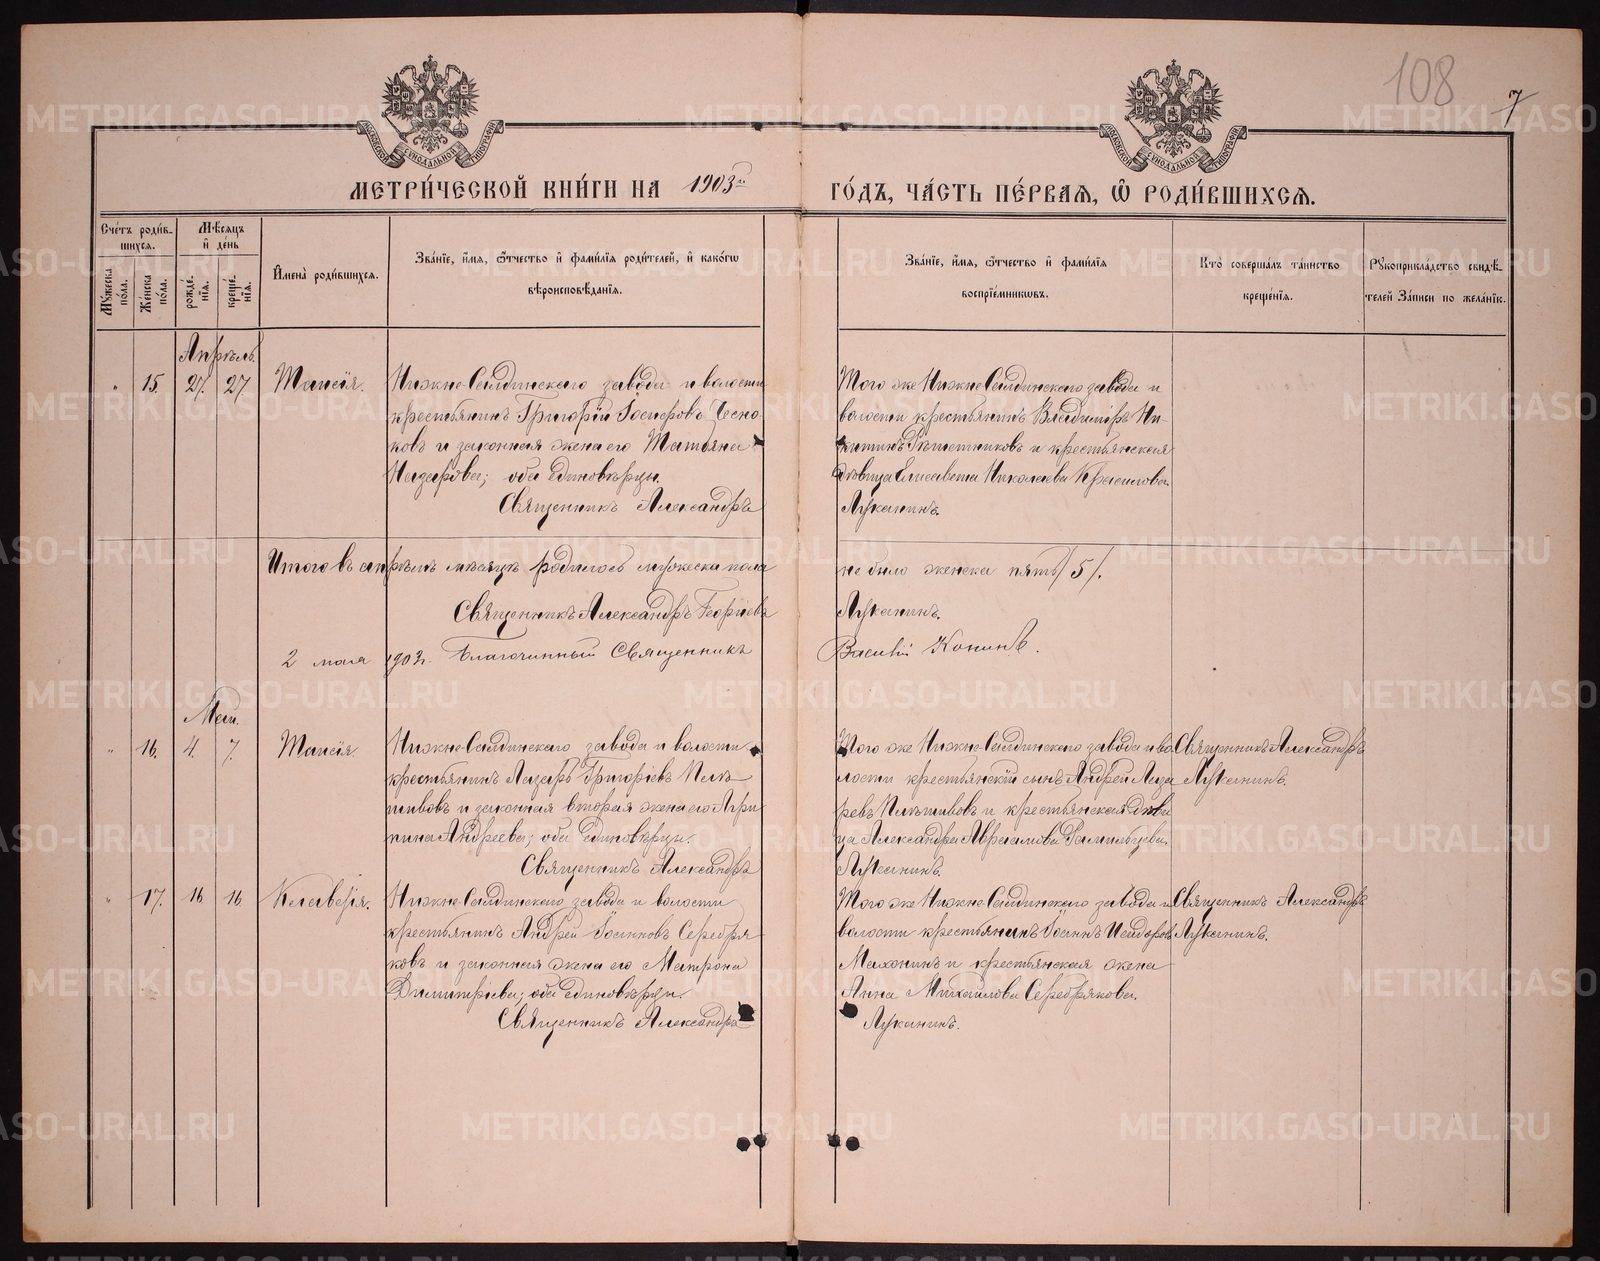 108
7
МЕТРИ́ЧЕСКОЙ КНИ́ГИ НА 1903й ГО́ДЪ, ЧА́СТЬ ПЕ́РВАЯ, Ѿ РОДИ́ВШИХСЯ.
МОСКОВСКОЙ СѴНОДАЛЬНОЙ ТИПОГРАФІИ
МОСКОВСКОЙ СѴНОДАЛЬНОЙ ТИПОГРАФІИ
Сче́тъ роди́в-
шихся.
Мужеска по́ла.
Же́нска по́ла.
Мѣ́сяцъ
и҆ де́нь
рожде́-
нїя.
креще́-
нїя.
И҆мена̀ роди́вшихся.
Зва́нїе, и҆́мя, ѻ҆́тчество и҆ фами́лїя роди́телей, и҆ како́гѡ
вѣроисповѣ́данїя.
Зва́нїе, и҆́мя, ѻ҆́тчество и҆ фами́лїя
воспрїе́мникѡвъ.
Кто̀ соверша́лъ та́инство
креще́нїя.
Рукоприкла́дство свидѣ́-
телей За́писи по жела́нїю.
Апрѣль.
" 15. 27. 27 Таисія.
Нижне-Салдинскаго завода и волости
крестьянинъ Григорій Іосифовъ Чесно-
ковъ и законная жена его Татьяна
Назарова; оба единовѣрцы.
Священникъ Александръ
Того же Нижне-Салдинскаго завода и
волости крестьянинъ Владиміръ Ни-
китинъ Рѣшетниковъ и крестьянская
дѣвица Елисавета Николаева Красилова.
Луканинъ.
Итого въ апрѣлѣ мѣсяцѣ родилось мужеска пола
не было женска пять /5/.
Священникъ Александръ Георгіевъ
Луканинъ.
2 мая 1903г. Благочинный Священникъ
Василій Конинъ.
Май.
" 16. 4. 7. Таисія
Нижне-Салдинскаго завода и волости
крестьянинъ Лазарь Григоріевъ Плѣ
шивовъ и законная вторая жена его Агри
пина Андреева; оба единовѣрцы.
Священникъ Александръ
Того же Нижне-Салдинскаго завода и во
лости крестьянскій сынъ Андрей Лаза
ревъ Плѣшивовъ и крестьянская дѣви
ца Александра Авраамова
Луканинъ.
Священникъ Александръ
Луканинъ.
" 17. 16 16 Клавдія.
Нижне-Салдинскаго завода и волости
крестьянинъ Андрей Іоанновъ Серебря
ковъ и законная жена его Матрона
Димитріева; оба единовѣрцы.
Священникъ Александръ
Того же Нижне-Салдинскаго завода и
волости крестьянинъ Іоаннъ Исидоровъ
Махонинъ и крестьянская жена
Анна Михайлова Серебрякова.
Луканинъ.
Священникъ Александръ
Луканинъ.
METRIKI.GASO-URAL.RU